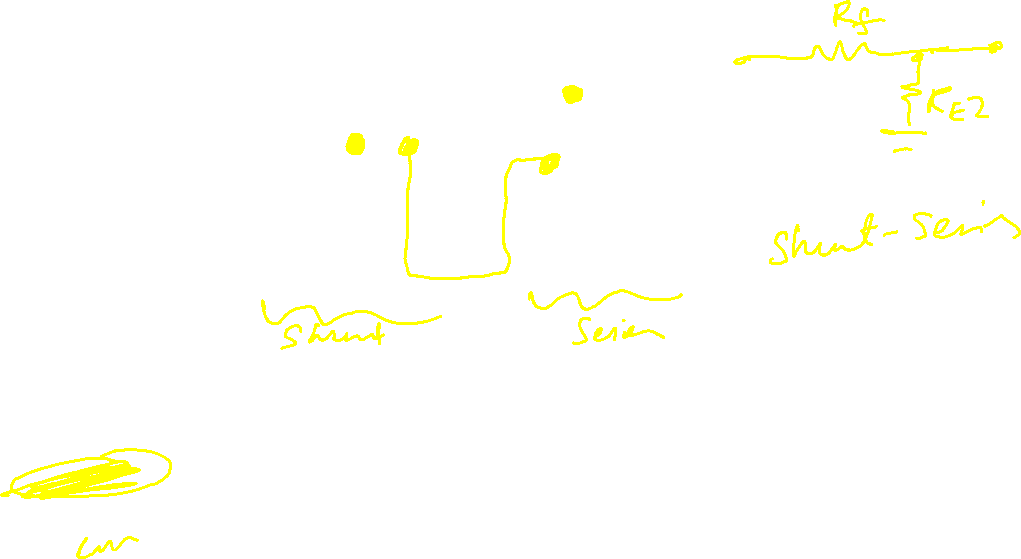 Rf
RE2
Shunt-Series
Shunt
Series